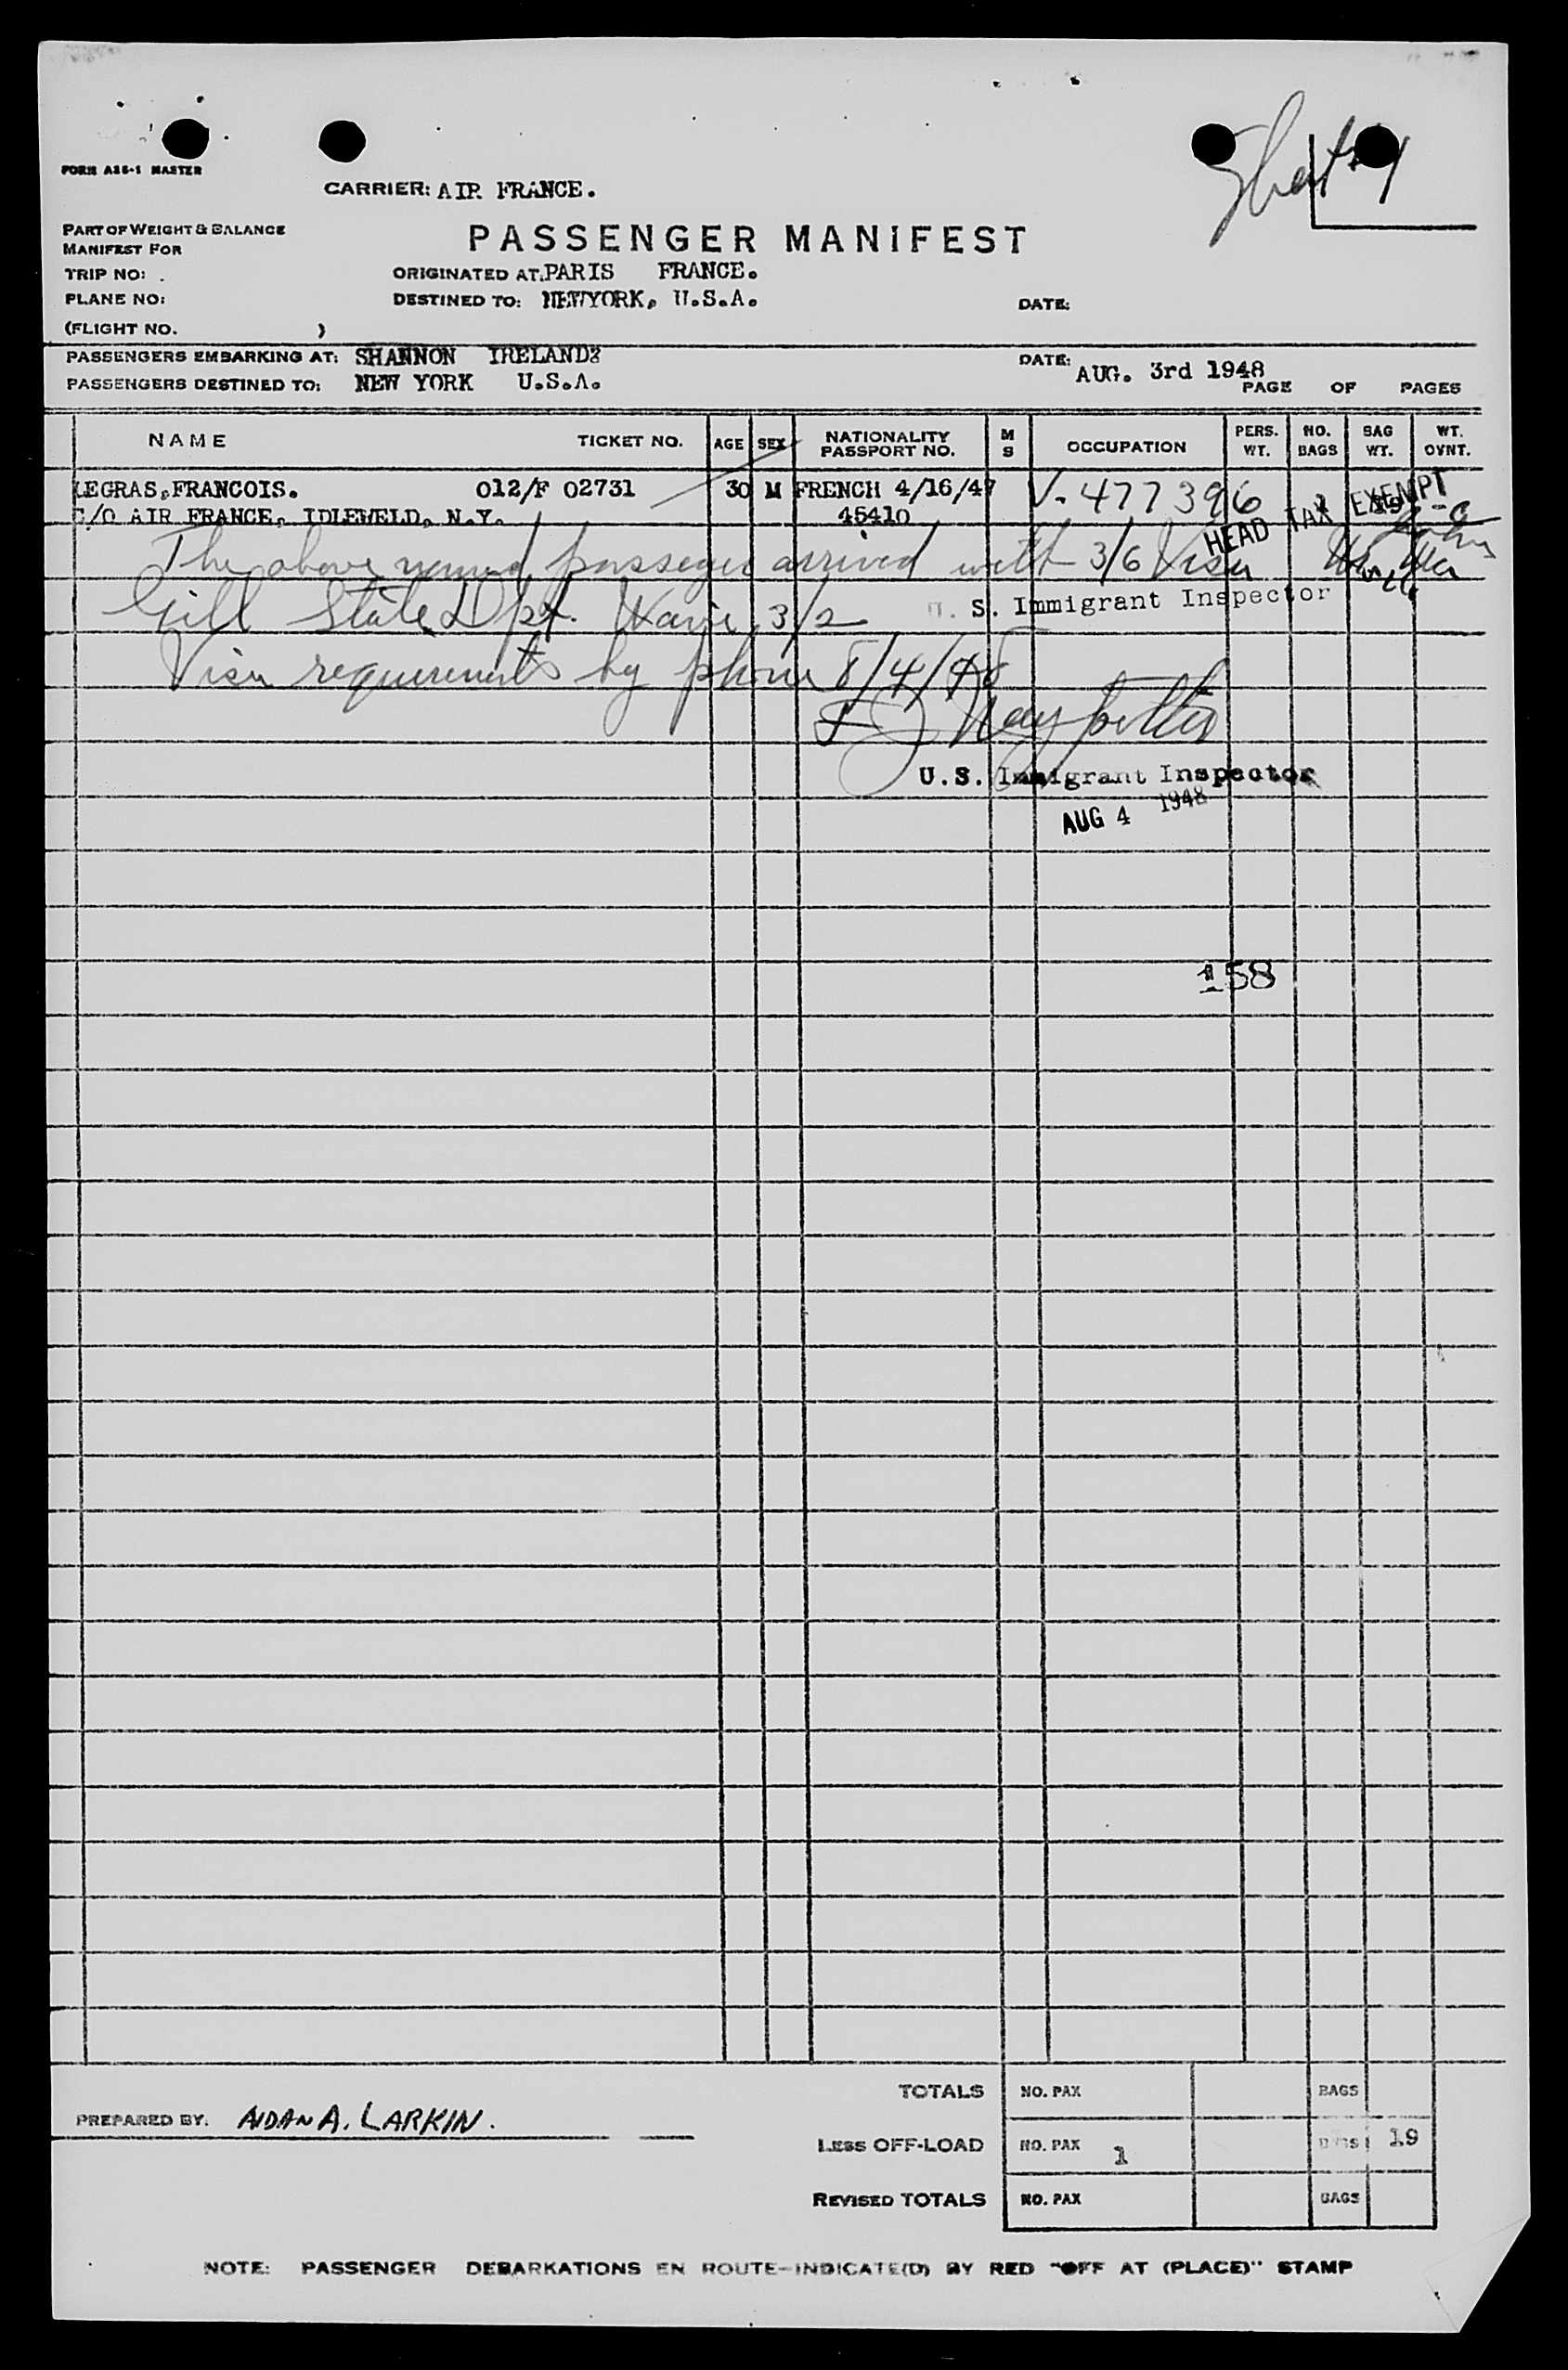 FORM A26-1 MASTER
CARRIER: AIR FRANCE.
PART OF WEIGHT & BALANCE
MANIFEST FOR
PASSENGER MANIFEST
TRIP NO: .
ORIGINATED AT: PARIS FRANCE.
PLANE NO:
DESTINED TO: NEWYORK, U.S.A.
DATE:
(FLIGHT NO. )
PASSENGERS EMBARKING AT: SHANNON IRELAND
DATE: AUG. 3rd 1948
PASSENGERS DESTINED TO: NEW YORK U.S.A.
PAGE OF PAGES
NAME TICKET NO. AGE SEX NATIONALITY PASSPORT NO. M S OCCUPATION PERS. WT. NO. BAGS BAG WT. WT. OVNT.
LEGRAS,FRANCOIS. 012/F 02731 30 M FRENCH 4/16/47 V. 477396 1 19
C/O AIR FRANCE, IDLEWELD, N.Y. 45410
HEAD TAX EXEMPT
The above named passeger arrived with 3/6 Visa
U. S. Immigrant Inspector
Gill State Dpt. Waive 3/2
Visa requirements by phone 8/4/48
U.S. Immigrant Inspector
AUG 4 1948
158
TOTALS NO. PAX BAGS
PREPARED BY. AIDAN A. LARKIN.
LESS OFF-LOAD NO. PAX 1 BAGS 19
REVISED TOTALS NO. PAX BAGS
NOTE: PASSENGER DEBARKATIONS EN ROUTE-INDICATE(D) BY RED "OFF AT (PLACE)" STAMP